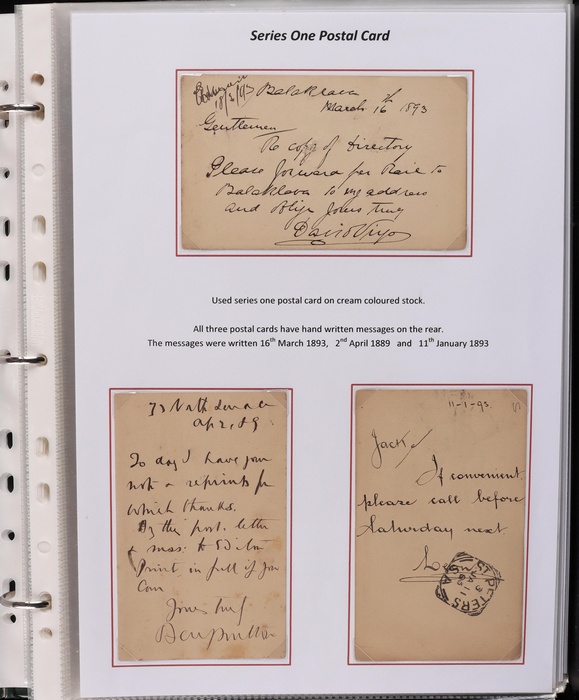 Series One Postal Card
18/3/93 Balaklava
March 16th 1893
Gentlemen
Re copy of Directory
Please forward per Rail to
Balaklava to my address
and Oblige Yours truly
Used series one postal card on cream coloured stock.
All three postal cards have hand written messages on the rear.
The messages were written 16th March 1893, 2nd April 1889 and 11th January 1893
To day I have your
note & reprints for
which thanks.
By this post. letter
& mss. to Editor
Print in full if you
Can
Yours truly
11-1-93.
Jack
If convenient
please call before
Saturday next
ST PETERS
JA 11
93
S.A